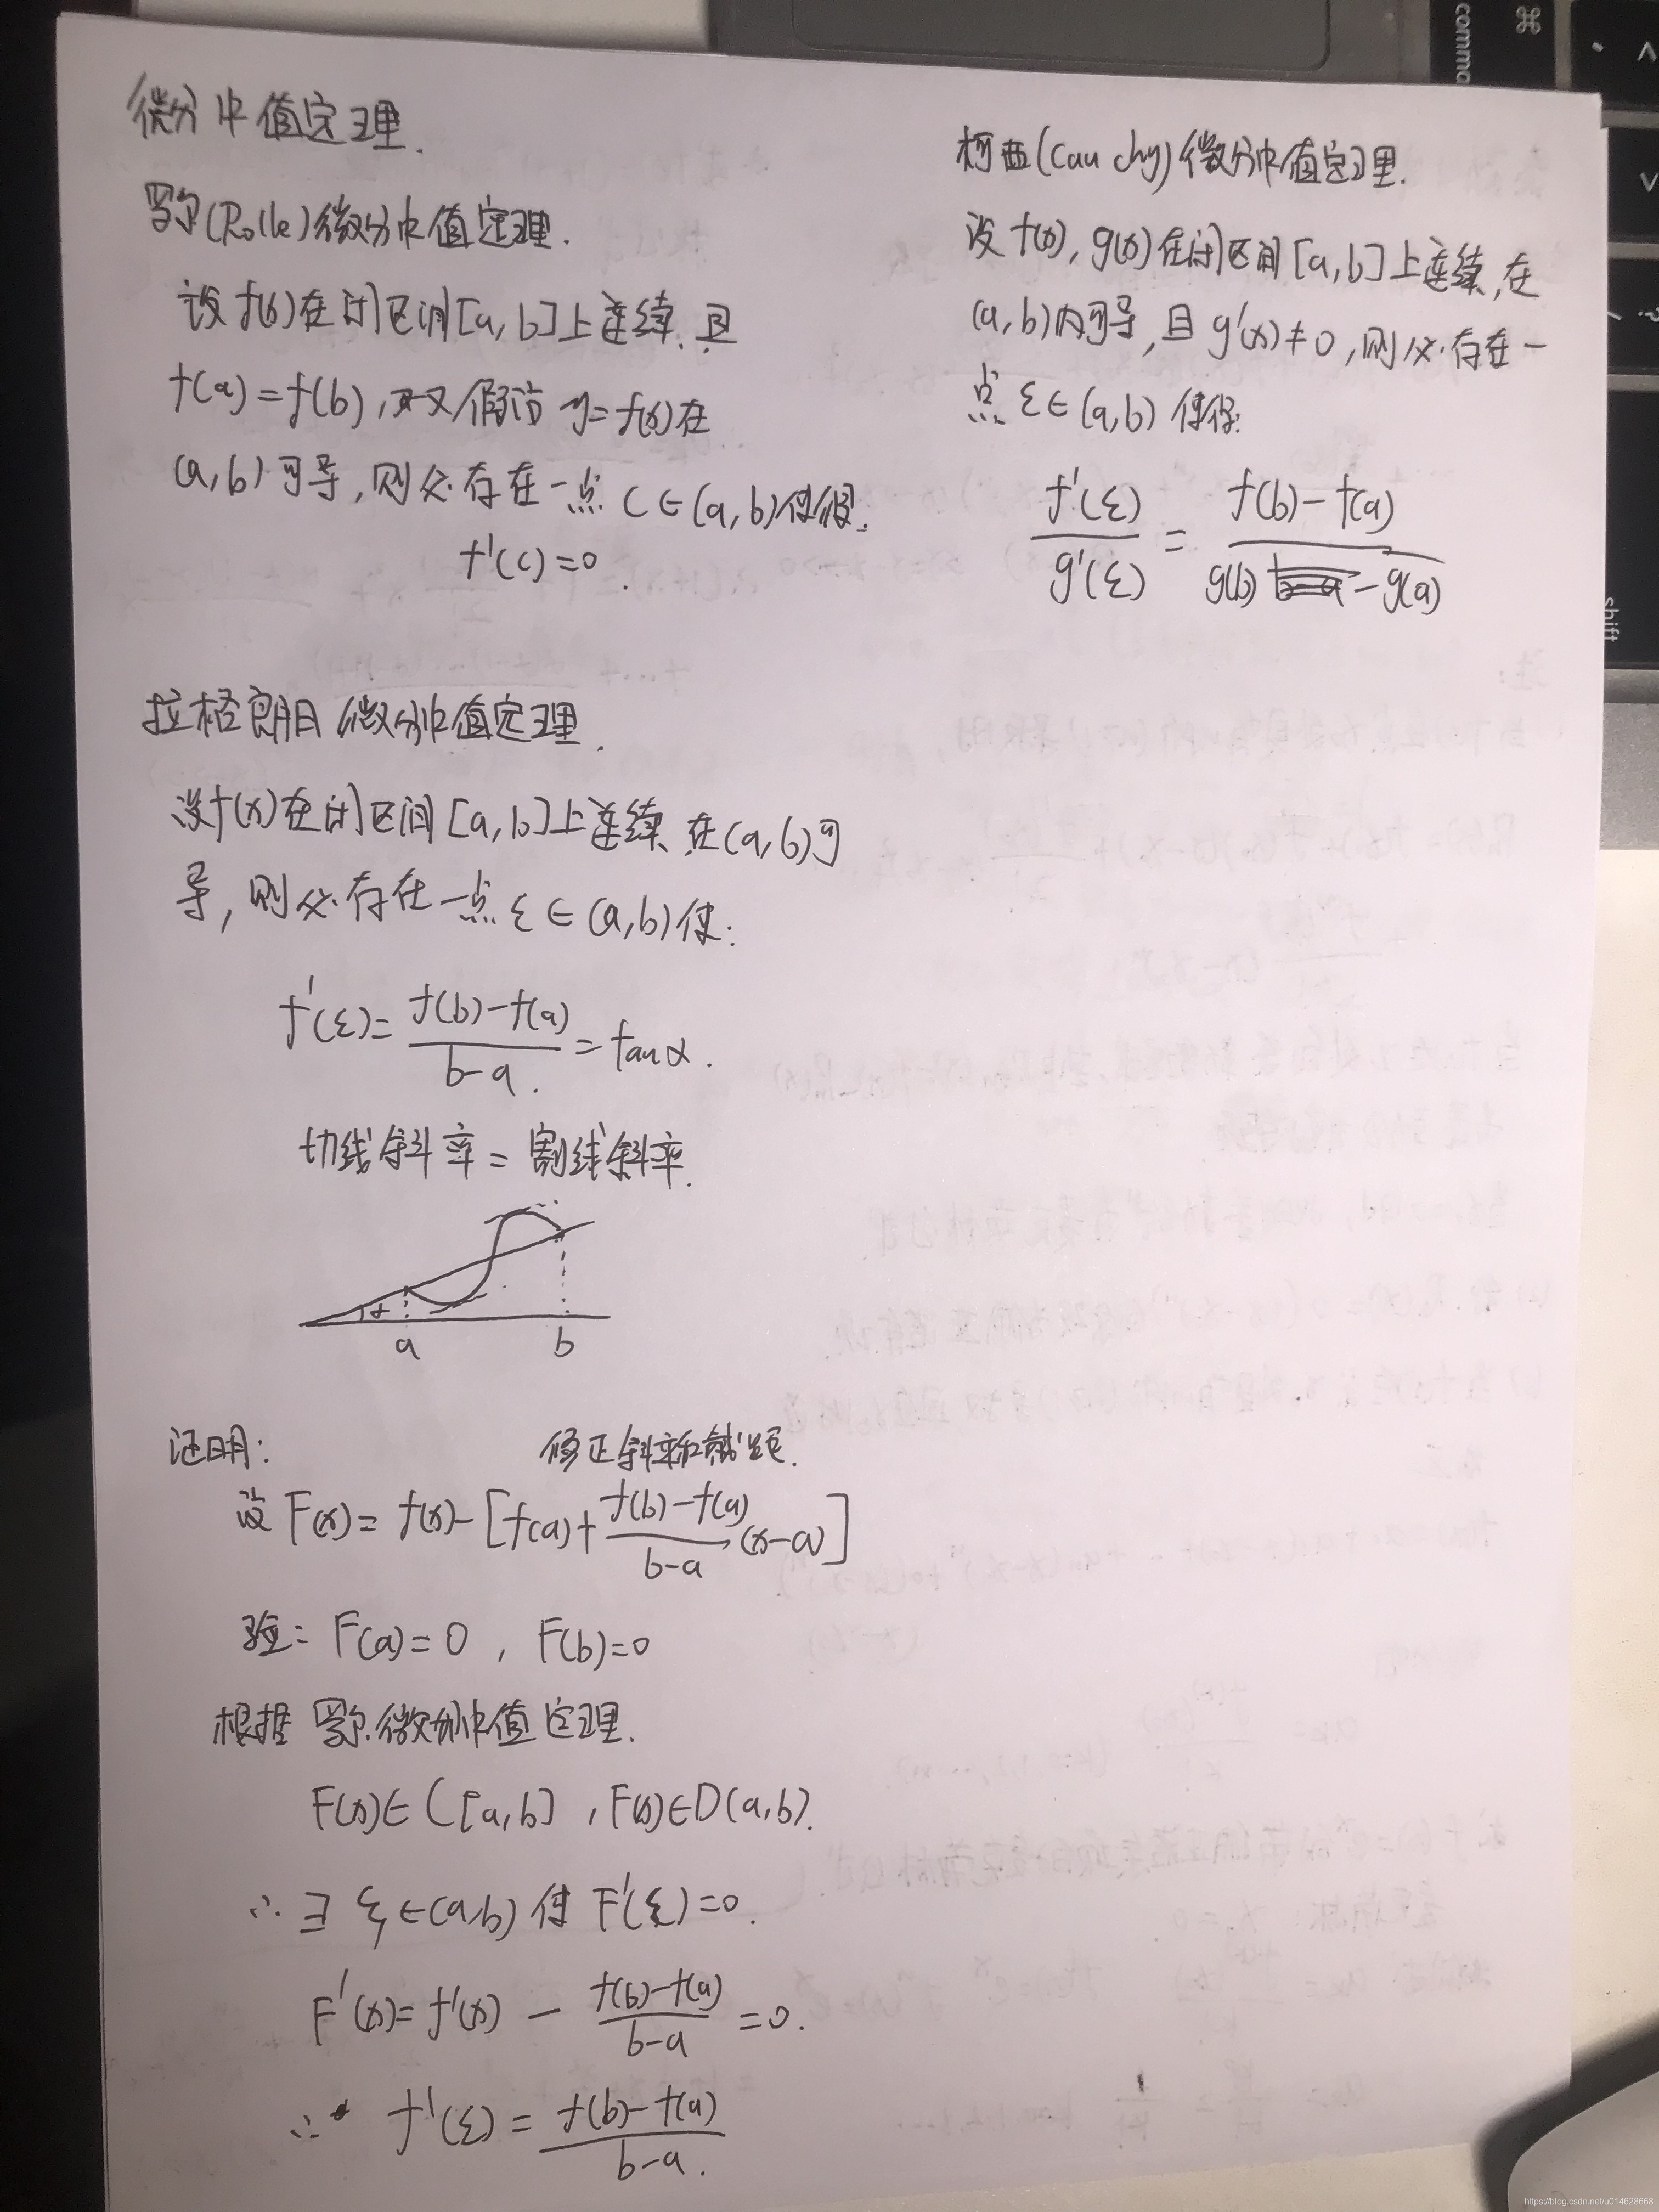 微分中值定理.
罗尔(Rolle)微分中值定理.
设f(x)在闭区间[a,b]上连续.且
f(a)=f(b),又假设 y=f(x)在
(a,b)可导,则必存在一点 C∈(a,b)使得.
f'(c)=0.
拉格朗日微分中值定理.
设f(x)在闭区间[a,b]上连续,在(a,b)可
导,则必存在一点 ξ∈(a,b)使:
f'(ξ)=\frac{f(b)-f(a)}{b-a}=tanα.
切线斜率=割线斜率.
α
a b
证明:
修正斜率和截距.
设 F(x)=f(x)-[f(a)+\frac{f(b)-f(a)}{b-a}(x-a)]
验: F(a)=0, F(b)=0
根据 罗尔微分中值定理.
F(x)∈C[a,b],F(x)∈D(a,b).
∴ ∃ ξ∈(a,b)使 F'(ξ)=0.
F'(x)=f'(x)-\frac{f(b)-f(a)}{b-a}=0.
∴ f'(ξ)=\frac{f(b)-f(a)}{b-a}.
柯西(Cauchy)微分中值定理.
设 f(x),g(x)在闭区间[a,b]上连续,在
(a,b)内可导,且g'(x)≠0,则必存在一
点 ξ∈(a,b)使得:
\frac{f'(ξ)}{g'(ξ)}=\frac{f(b)-f(a)}{g(b)-g(a)}
comma
⌘
shift
https://blog.csdn.net/u014628668